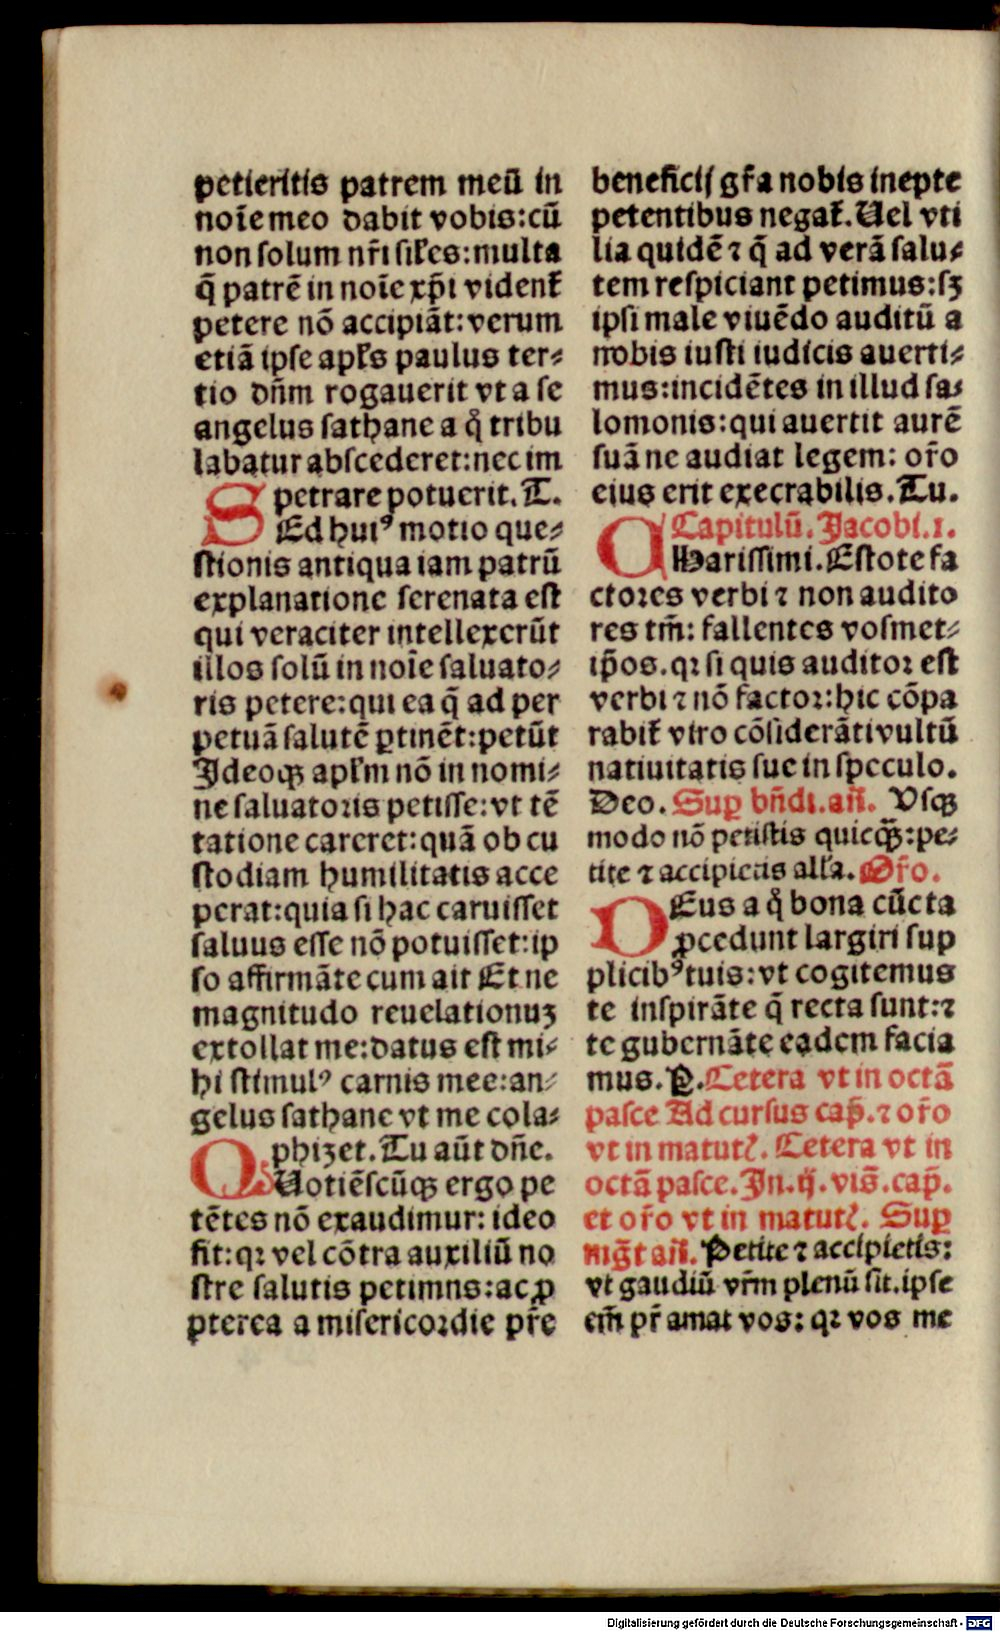 petieritis patrem meū in
noīe meo dabit vobis: cū
non solum nr̄i siłes: multa
q̄ patrē in noīe xp̄i vident᷑
petere nō accipiāt: verum
etiā ipse apłs paulus ter⸗
tio dn̄m rogauerit vt a se
angelus sathane a q̊ tribu
labatur abscederet: nec im
petrare potuerit. T.
SEd huiꝰ motio que⸗
stionis antiqua iam patrū
explanatione serenata est
qui veraciter intellexerūt
illos solū in noīe saluato⸗
ris petere: qui ea q̄ ad per
petuā salutē ꝑtinēt: petūt
Ideoqꝫ apłm nō in nomi⸗
ne saluatoris petisse: vt tē
tatione careret: quā ob cu
stodiam humilitatis acce
perat: quia si hac caruisset
saluus esse nō potuisset: ip
so affirmāte cum ait Et ne
magnitudo reuelationuꝫ
extollat me: datus est mi⸗
hi stimulꝰ carnis mee: an⸗
gelus sathane vt me cola⸗
phizet. Tu aūt dn̄e.
QUotiēscūqꝫ ergo pe
tētes nō exaudimur: ideo
fit: qꝛ vel cōtra auxiliū no
stre salutis petimns: ac ꝓ
pterea a misericordie pr̄e
beneficijs gr̄a nobis inepte
petentibus negat᷑. Uel vti
lia quidē ⁊ q̄ ad verā salu⸗
tem respiciant petimus: sꝫ
ipsi male viuēdo auditū a
nobis iusti iudicis auerti⸗
mus: incidētes in illud sa⸗
lomonis: qui auertit aurē
suā ne audiat legem: or̄o
eius erit execrabilis. Tu.
Capitulū. Jacobi. 1.
CHarissimi. Estote fa
ctores verbi ⁊ non audito
res tm̄: fallentes vosmet⸗
ip̄os. qꝛ si quis auditor est
verbi ⁊ nō factor: hic cōpa
rabit᷑ viro cōsiderāti vultū
natiuitatis sue in speculo.
Deo. Suꝑ bn̄dı. an̄. Usqꝫ
modo nō petistis quicq̄ꝫ: pe⸗
tite ⁊ accipietis ałła. Or̄o.
DEus a q̊ bona cūcta
ꝓcedunt largiri sup
plicibꝰ tuis: vt cogitemus
te inspirāte q̄ recta sunt: ⁊
te gubernāte eadem facia
mus. P. Cetera vt in octā
pasce Ad cursus cap̄. ⁊ or̄o
vt in matutꝭ. Cetera vt in
octā pasce. In. ij. vis̄. cap̄.
et or̄o vt in matutꝭ. Suꝑ
mḡt an̄. Petite ⁊ accipietis:
vt gaudiū vr̄m plenū sit. ipse
em̄ pr̄ amat vos: qꝛ vos me
Digitalisierung gefördert durch die Deutsche Forschungsgemeinschaft - DFG